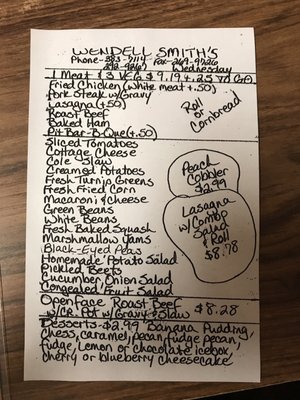 WENDELL SMITH'S
Phone-383-7114 Fax-269-9226
292-9267 Wednesday
1 Meat & 3 VEG $9.19 4.25 TO GO
Fried Chicken (white meat +.50)
Pork Steak w/Gravy
Lasagna (+.50)
Roast Beef
Baked Ham
Pit Bar-B-Que (+.50)
Roll
or
Cornbread
Sliced Tomatoes
Cottage Cheese
Cole Slaw
Creamed Potatoes
Fresh Turnip Greens
Fresh Fried Corn
Macaroni & Cheese
Green Beans
White Beans
Fresh Baked Squash
Marshmallow Yams
Black-Eyed Peas
Homemade Potato Salad
Pickled Beets
Cucumber Onion Salad
Congealed Fruit Salad
Peach
Cobbler
$2.99
Lasagna
w/Combo
Salad
& Roll
$8.78
Openface Roast Beef
w/CR. Pot w/Gravy & Slaw $8.28
Desserts-$2.99 Banana Pudding,
chess, caramel, pecan, fudge pecan,
fudge, Lemon or chocolate icebox,
cherry or blueberry cheesecake